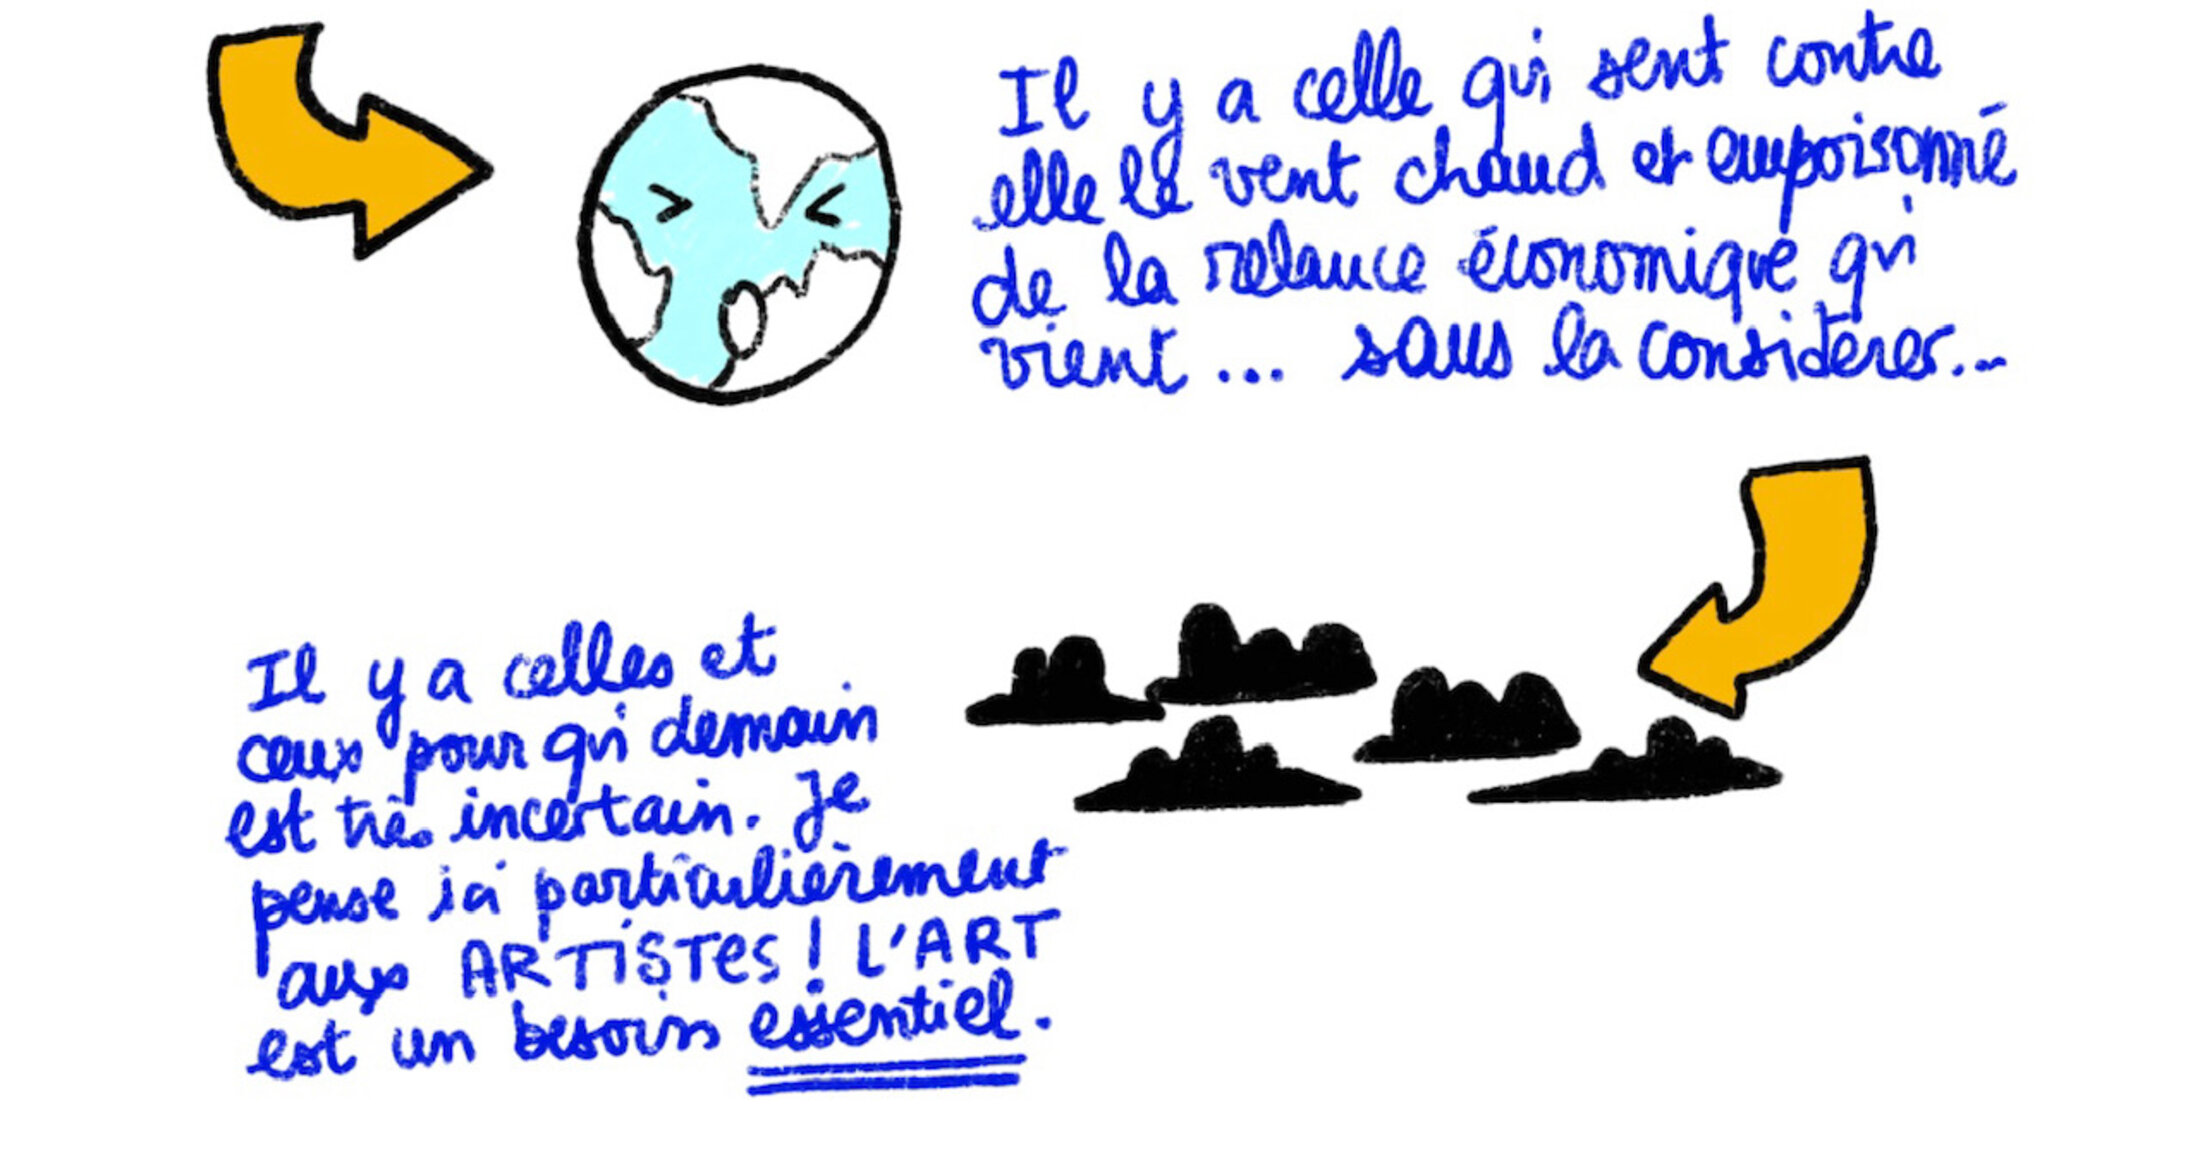 Il y a celle qui sent contre
elle le vent chaud et empoisonné
de la relance économique qui
vient... sans la considérer...
Il y a celles et
ceux pour qui demain
est très incertain. Je
pense ici particulièrement
aux ARTISTES! L'ART
est un besoin essentiel.